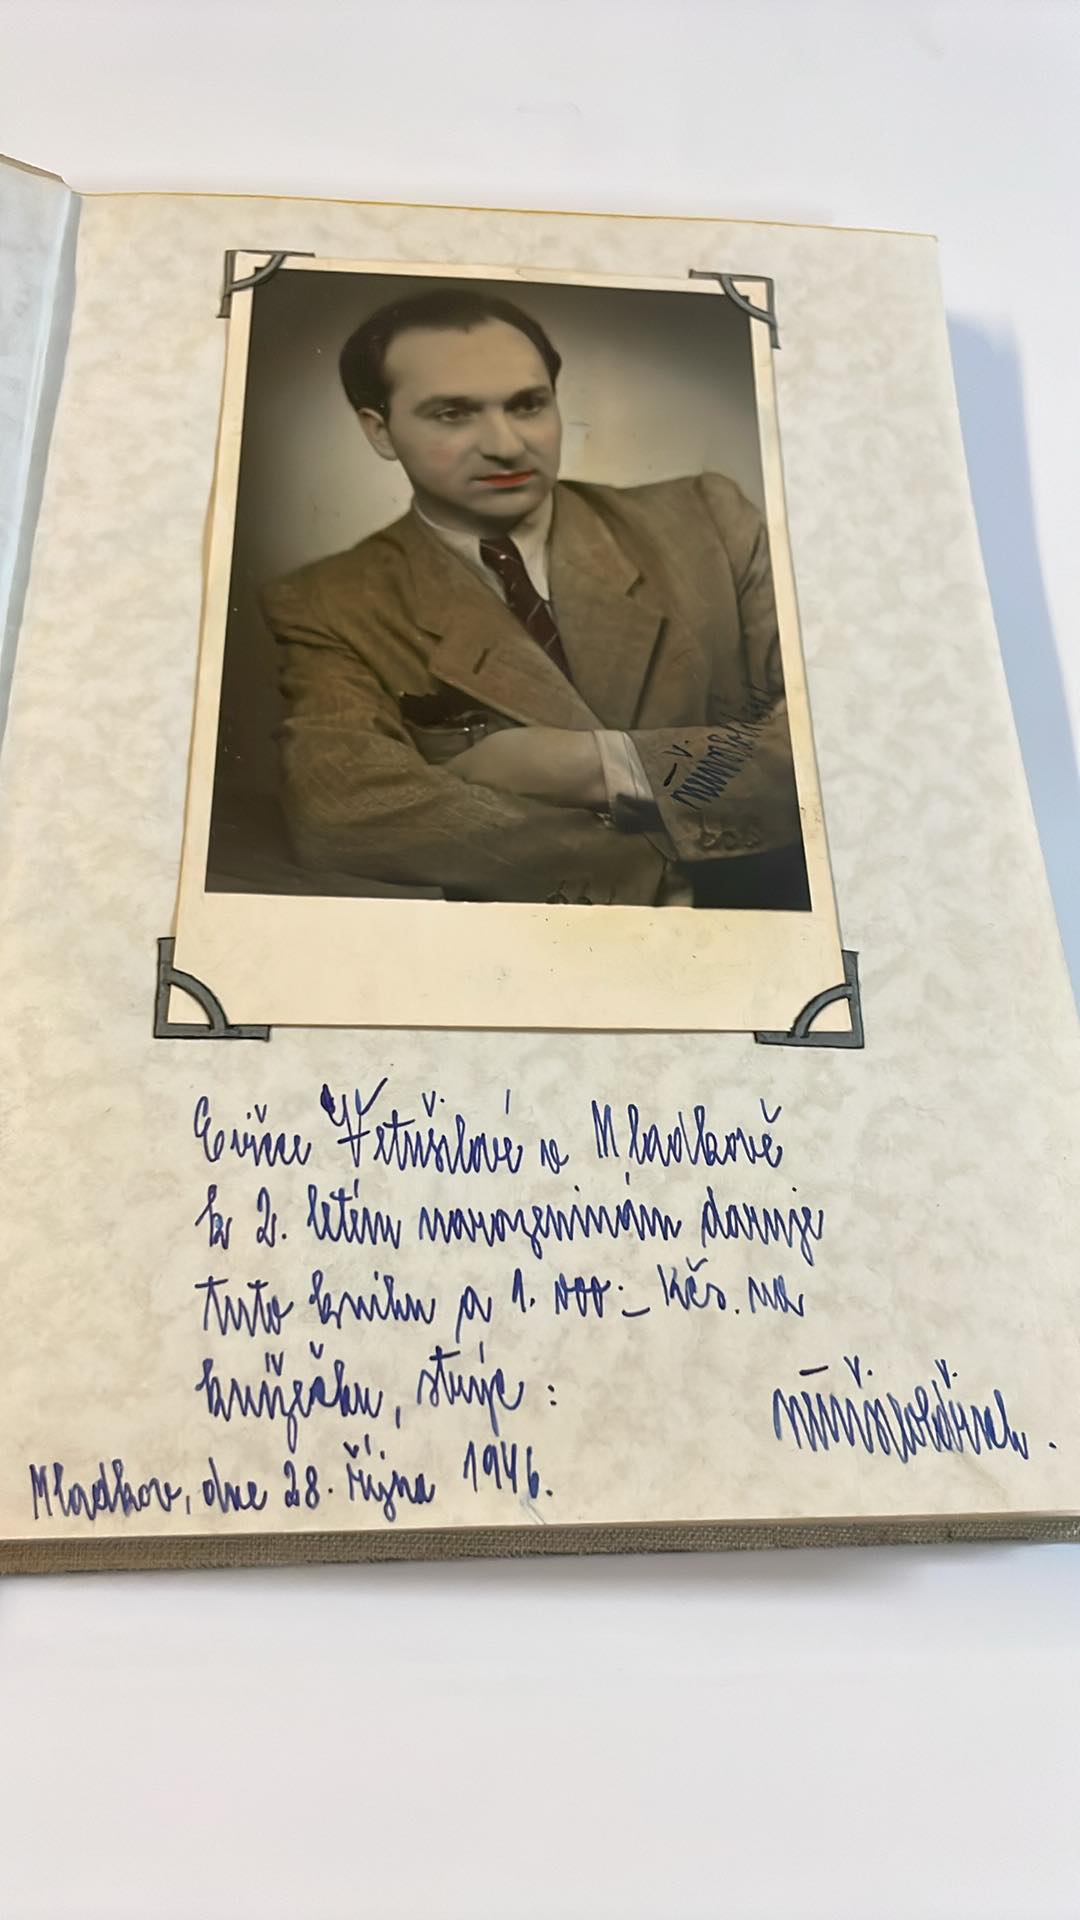 Evičce Vetušilové v Mladkově
k 2. letém narozeninám daruje
tuto knihu a 1.000.- Kčs. na
knížečku, strýc:
Mladkov, dne 28. října 1946.